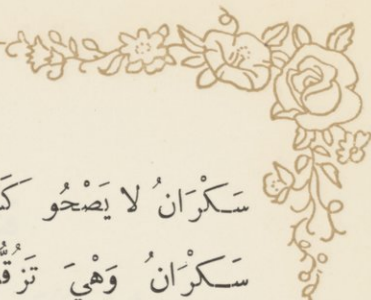 سَكْرَانُ لا يَصْحُو
سَكْرَانُ وَهْيَ